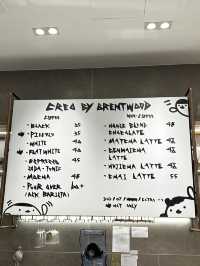 CREO BY BRENTWOOD
COFFEE
- BLACK 35
- PICCOLO 35
- WHITE 40
- FLAT WHITE 40
- ESPRESSO 45
SODA - TONIC
- MOCHA 45
- POUR OVER 60+
(ASK BARISTA)
NON-COFFEE
- WHOLE BLEND 45
CHOCOLATE
- MATCHA LATTE 48
- GENMAICHA 48
LATTE
- HOJICHA LATTE 48
- CHAI LATTE 55
HOT ONLY